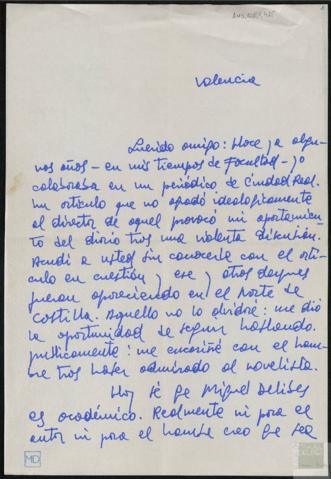 Valencia
Querido amigo: Hace ya algu-
nos años - en mis tiempos de Facultad - yo
colaboraba en un periódico de Ciudad Real.
Un artículo que no agradó ideológicamente
al director de aquel provocó mi apartamien-
to del diario tras una violenta discusión.
Acudí a usted sin conocerle con el artí-
culo en cuestión y ese y otros después
fueron apareciendo en el Norte de
Castilla. Aquello no lo olvidré: me dió
la oportunidad de seguir hablando
públicamente: me encariñé con el hom-
bre tras haber admirado al novelista.
Hoy sé qe Miguel Delibes
es académico. Realmente ni para el
autor ni para el hombre creo qe sea
MD